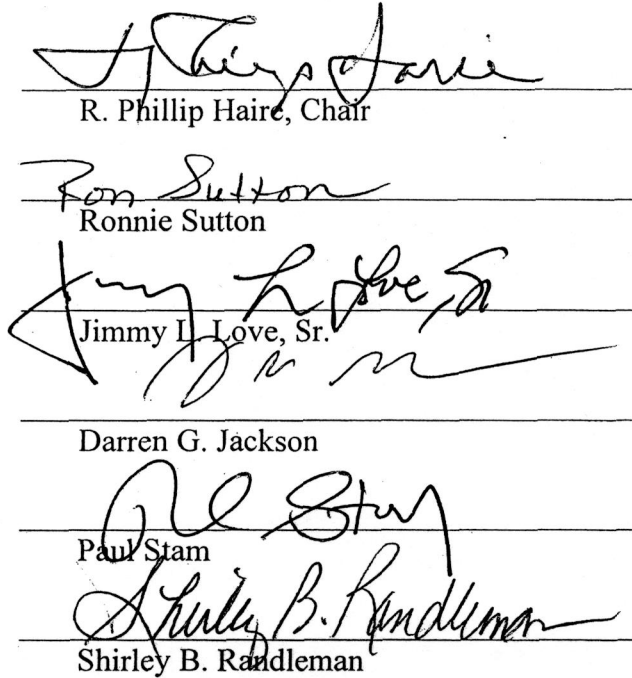 R. Phillip Haire, Chair
Ron Sutton
Ronnie Sutton
Jimmy L. Love, Sr.
Jimmy L. Love, Sr.
Darren G. Jackson
Paul Stam
Paul Stam
Shirley B. Randleman
Shirley B. Randleman